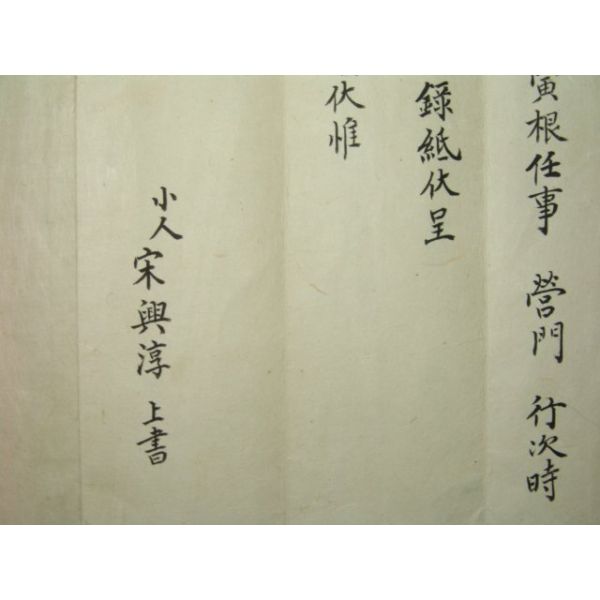 寅根任事 營門 行次時
錄紙伏呈
伏惟
小人宋興淳 上書